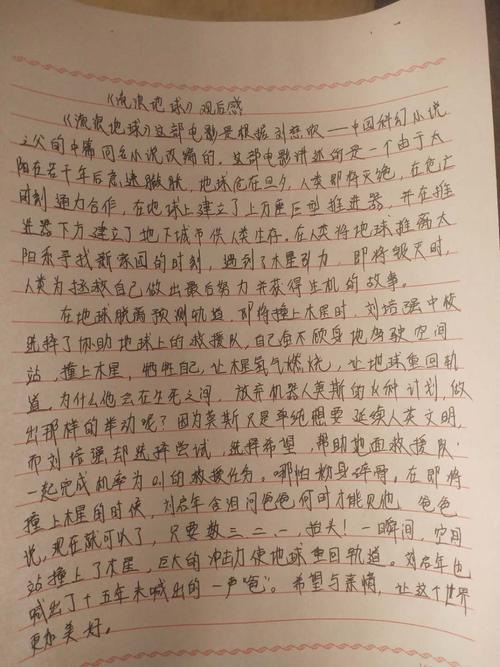 《流浪地球》观后感
《流浪地球》这部电影是根据刘慈欣——中国科幻小说
之父的中篇同名小说改编的。这部电影讲述的是一个由于太
阳在若干年后急速膨胀,地球危在旦夕,人类即将灭绝,在危亡
时刻通力合作,在地球上建立了上万座巨型推进器,并在推
进器下方建立了地下城市供人类生存。在人类将地球推离太
阳系寻找新家园的时刻,遇到了木星引力,即将毁灭时,
人类为拯救自己做出最后努力并获得生机的故事。
在地球脱离预测轨道,即将撞上木星时,刘培强中校
选择了协助地球上的救援队,自己奋不顾身地驾驶空间
站,撞上木星,牺牲自己,让木星氢气燃烧,让地球重回轨
道。为什么他会在生死之间,放弃机器人莫斯的火种计划,做
出那样的举动呢?因为莫斯只是单纯想要延续人类文明,
而刘培强却选择尝试,选择希望,帮助地面救援队
一起完成机率为0.1的救援任务。哪怕粉身碎骨。在即将
撞上木星的时候,刘启年含泪问爸爸何时才能见他,爸爸
说,现在就可以了,只要数三、二、一,抬头!一瞬间,空间
站撞上了木星,巨大的冲击力使地球重回轨道。刘启年也
喊出了十五年未喊出的一声“爸”。希望与亲情,让这个世界
更加美好。